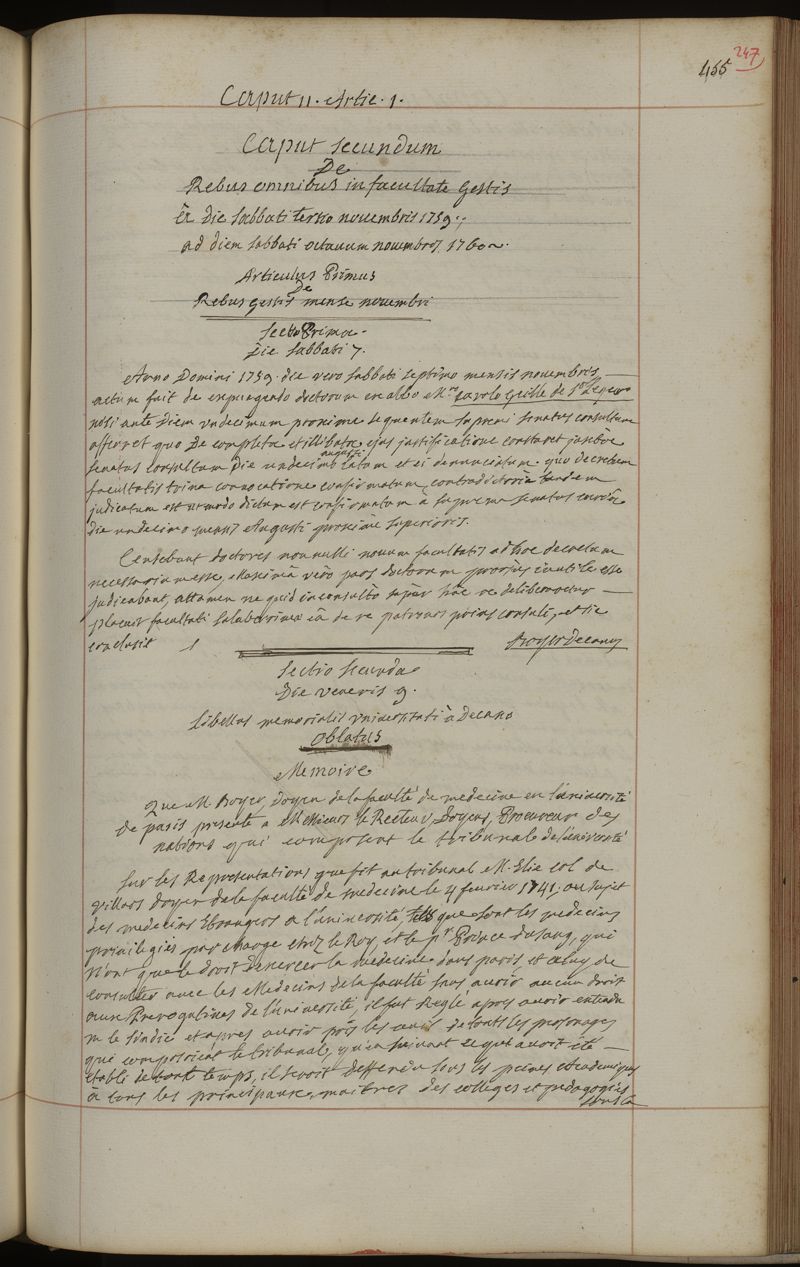 247
455
Caput 11. Artic. 1.
Caput secundum
De
Rebus omnibus in facultate Gestis
à Die sabbati tertio novembris 1759.
ad diem sabbati octavum novembris 1760
Articulus Primus
De
Rebus gestis mense novembri
Sectio Prima
Die sabbati 7.
Anno Domini 1759. die vero sabbati septimo mensis novembris
actum fuit de expungendo doctorum ex albo M. Carolo Geille de St
nisi ante diem undecimum proxime sequentem supremi senatus consultum
afferret quo de completa et illibata ejus justificatione constaret juxta
senatus consultum die undecimo augusti latum et ei denunciatum. quo decretum
facultatis trina convocatione confirmatum, contradictoria tandem
judicatum est ut modo dictum est confirmatum à suprema senatus curia
die undecimo mensis Augusti proxime superioris.
Censebant doctores nonnulli novum facultatis ad hoc decretum
necessarium esse, Maxima vero pars doctorum prorsus inutile esse
judicabant, attamen ne quid inconsulto super hac re deliberaretur
placuit facultati saluberrimae eâ de re patronos prius consuli, et sic
conclusit 1 Boyer Decanus
Sectio secunda
Die veneris 9.
Libellus memorialis universitati à Decano
Oblatus
Memoire
Que M Boyer, doyen de la faculté de medecine en l'université
de paris presente a Messieurs le Recteur, Doyens, Procureur des
nations qui composent le tribunal de l'université
Sur les Representations que fit au tribunal M. Elie col de
villars doyen de la faculté de medecine le 4 fevrier 1741, au sujet
des medecins Etrangers a l'université, tels que sont les medecins
privilegiés par charge chez le Roy, et le pr Prince du sang, qui
n'ont que le droit d'exercer la medecine dans paris, et celuy de
consulter avec les Medecins de la faculté sans avoir aucun droit
aux Prerogatives de l'université, il fut Reglé apres avoir entendu
m le sindic et apres avoir pris les avis de touts les personages
qui composoient le tribunal, qu'en suivant ce qui avoit été
etabli de tout temps, il seroit deffendu sous les peines Academiques
à tous les principaux, maitres des colleges et pedagogies
sous la